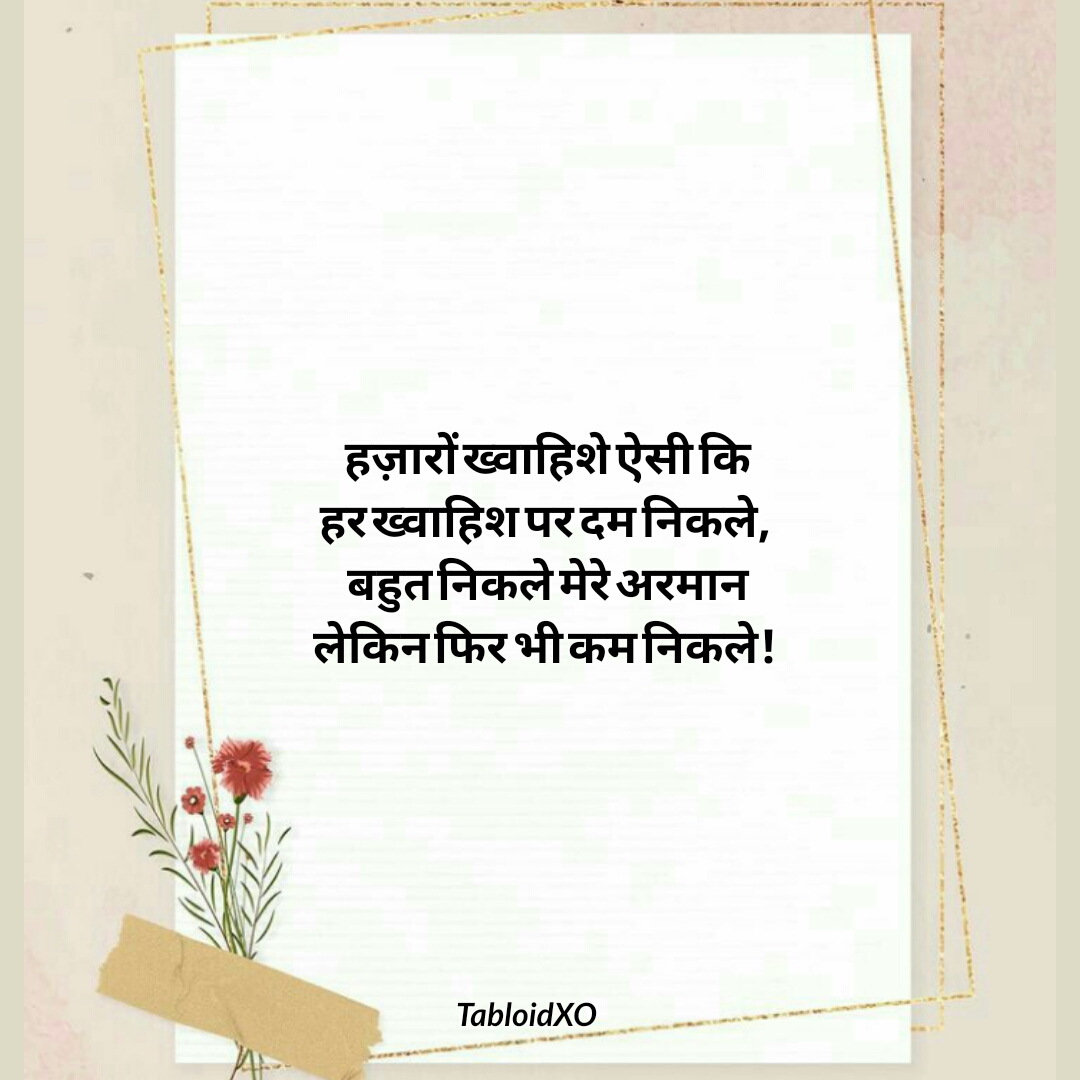 हज़ारों ख्वाहिशे ऐसी कि
हर ख्वाहिश पर दम निकले,
बहुत निकले मेरे अरमान
लेकिन फिर भी कम निकले!
TabloidXO